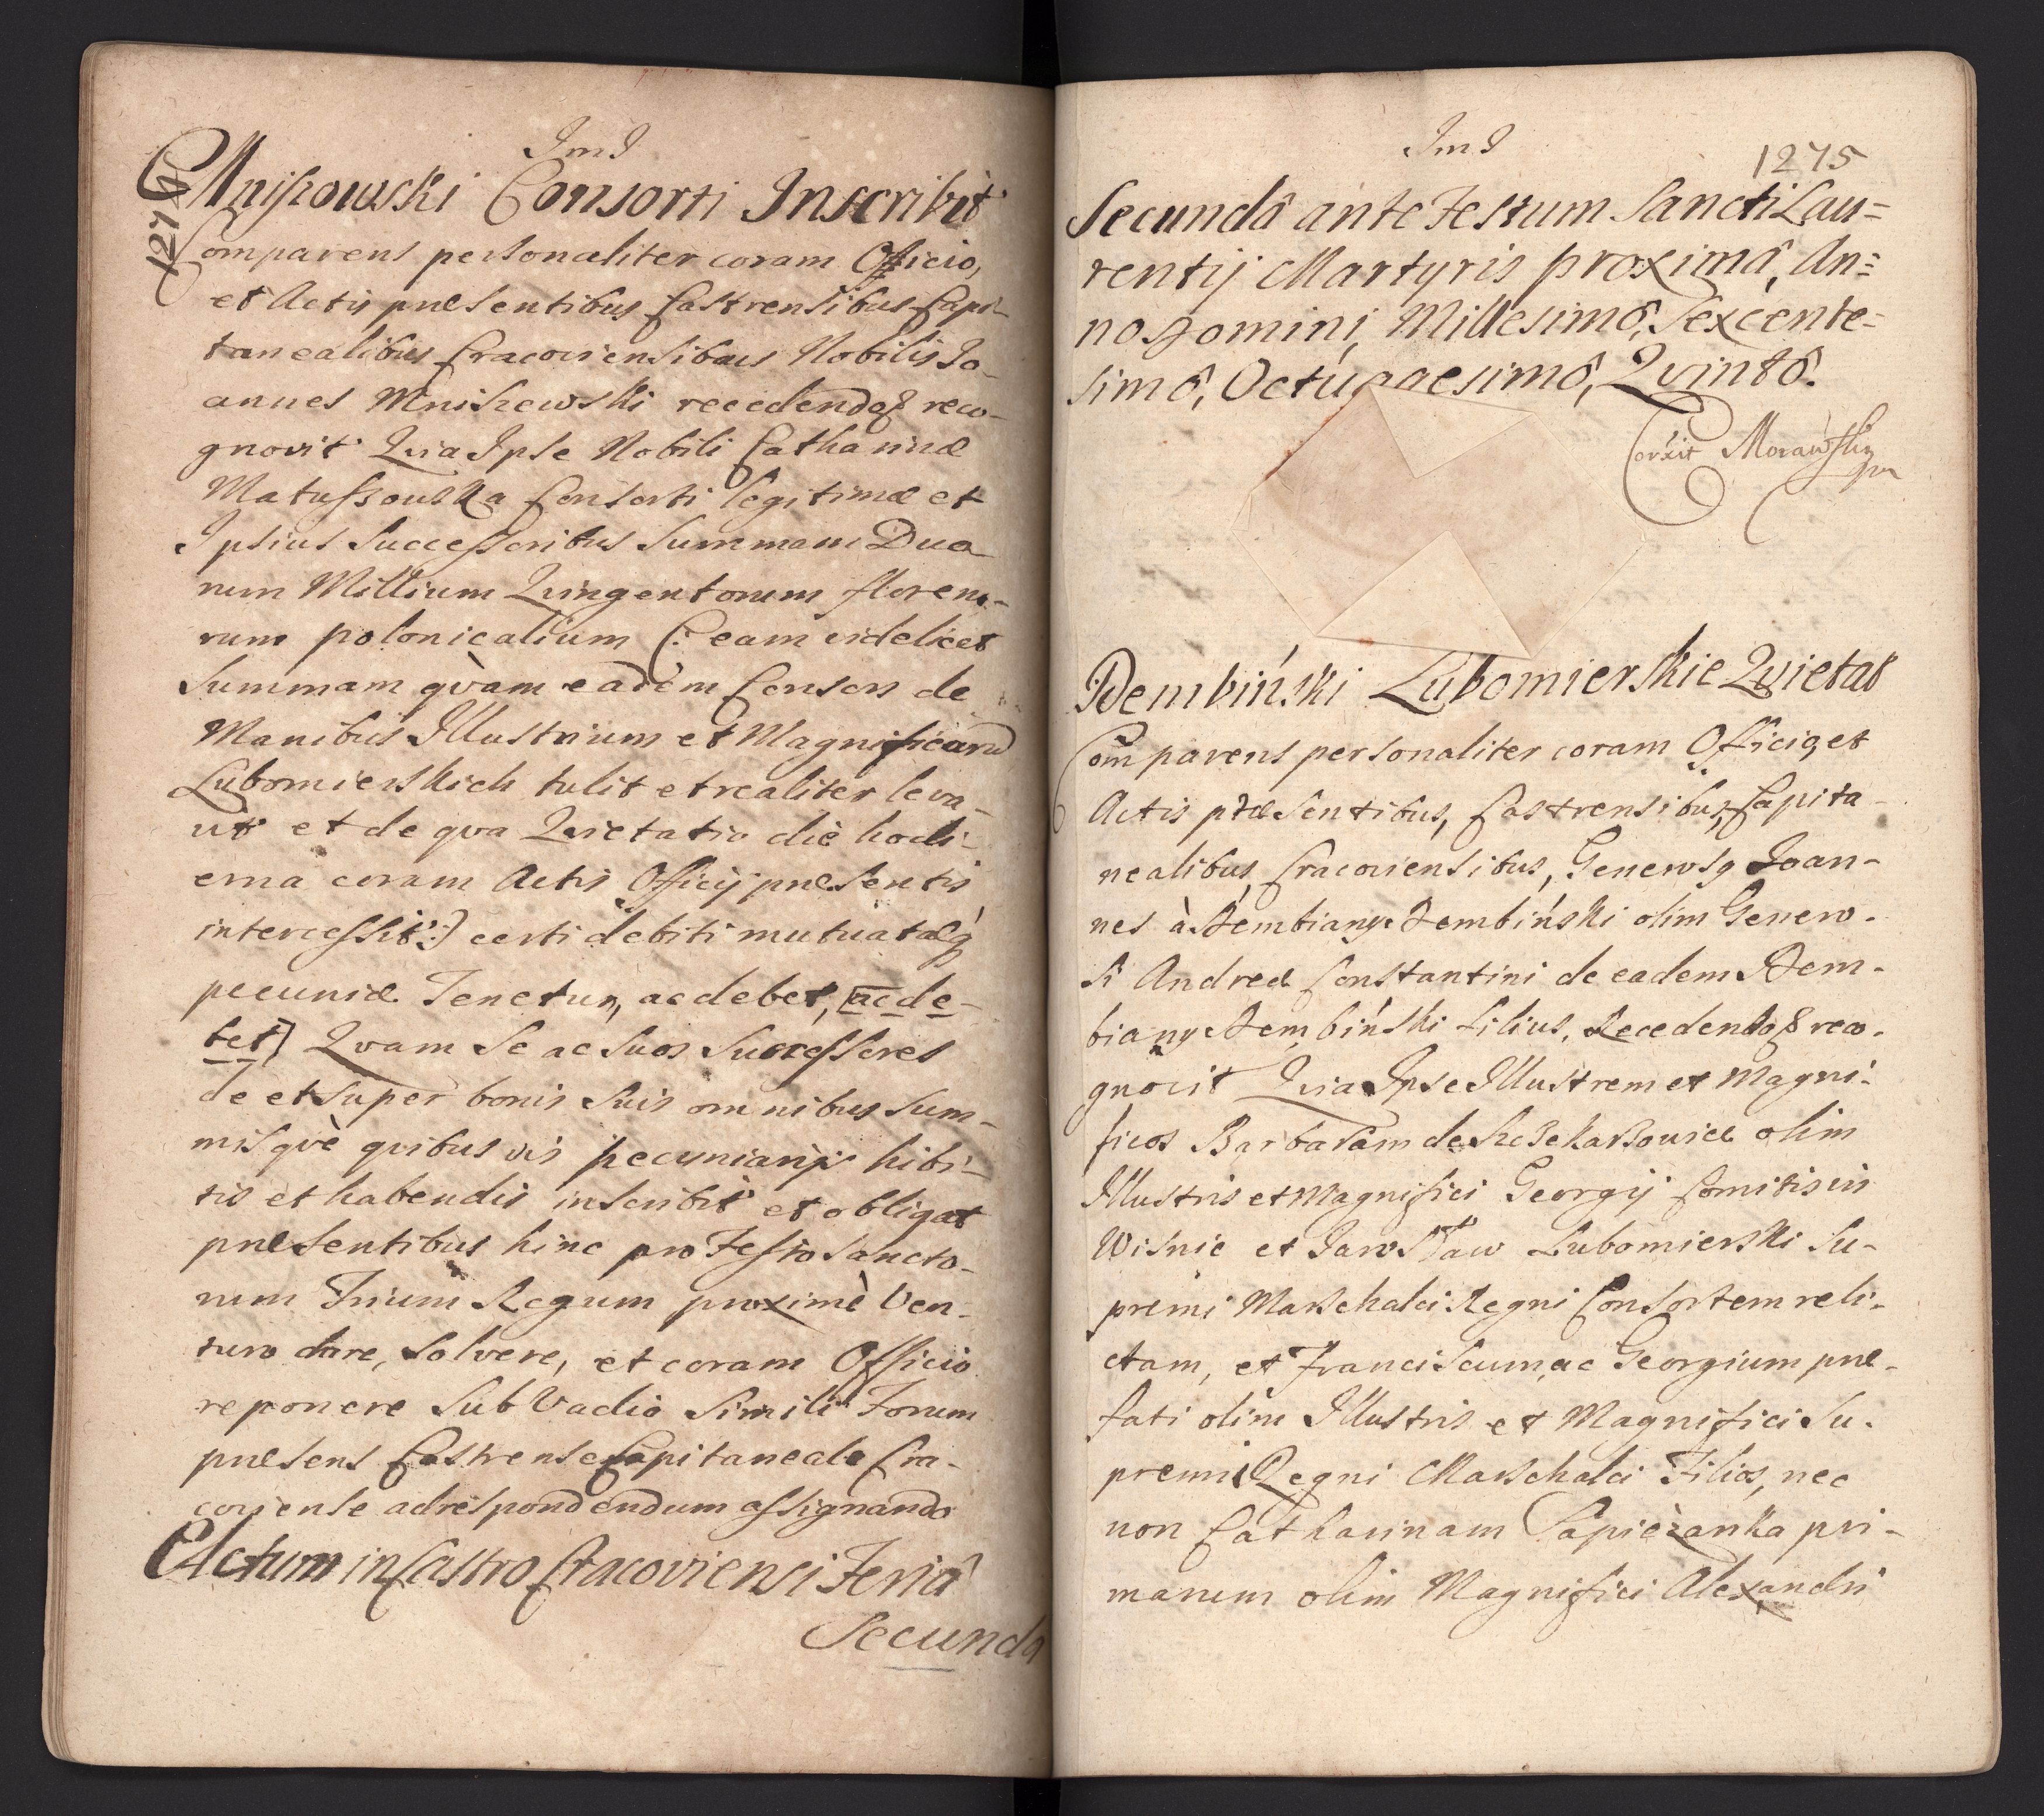 JmJ
1274
Mniszowski Consorti Inscribit
Comparens personaliter coram Officio,
et Actis præsentibus Castrensibus Capi-
tanealibus Cracoviensibus Nobilis Jo-
annes Mniszewski recedendoq reco-
gnovit Qvia Ipse Nobili Catharinæ
Matuszouska Consorti legitimæ et
Ipsius Successoribus Summam Dua-
rum Millium Qvingentorum floreno-
rum polonicalium (: eam videlicet
Summam qvàm eadem Consors de
Manibus Illustrium et Magnificorum
Lubomierskich tulit et realiter leva-
vit et de qva Qvietatio die hodi-
erna coram Actis Officij præsentis
intercessit :) certi debiti mutuatæq
pecuniæ Tenetur, ac debet, [ac de-
bet] Qvam Se ac Suos Successores
de et super bonis Suis omnibus Sum-
misqvè qvibus vis pecuniarijs hibi-
tis et habendis inscribit et obligat
præsentibus hinc pro Festo Sancto-
rum Trium Regum proximè Ven-
turo dare, Solvere, et coram Officio
reponere Sub Vadio Simili Forum
præsens Castrense Capitaneale Cra-
coviense ad respondendum assignando
Actum in Castro Cracoviensi Feriâ
Secunda
JmJ
1275
Secundâ ante Festum Sancti Lau=
rentij Martyris proximâ, An=
no Domini, Millesimô, Sexcente=
simô, Octuagesimô, Qvintô.
Corxit Morawski
Dembiński Lubomierskie Qvietat
Comparens personaliter coram Officio, et
Actis præsentibus, Castrensibus, Capita-
nealibus, Cracoviensibus, Generosq Joan-
nes à Dembiany Dembiński olim Genero-
si Andreæ Constantini de eadem Dem-
biany Dembiński Filius, Recedendoq reco-
gnovit Qvia Ipse Illustrem et Magni-
ficos Barbaram de
olim
Illustris et Magnifici Georgij Comitis in
Wisnic et Jarosław Lubomierski Su-
premi Marschalci Regni Consortem reli-
ctam, et Franciscum, ac Georgium præ-
fati olim Illustris et Magnifici Su-
premi Regni Marschalci Filios, nec
non Catharinam Sapieżanka pri-
marum olim Magnifici Alexandri